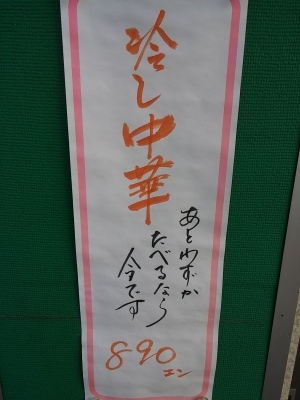 冷し中華
あとわずか
たべるなら
今です
890エン